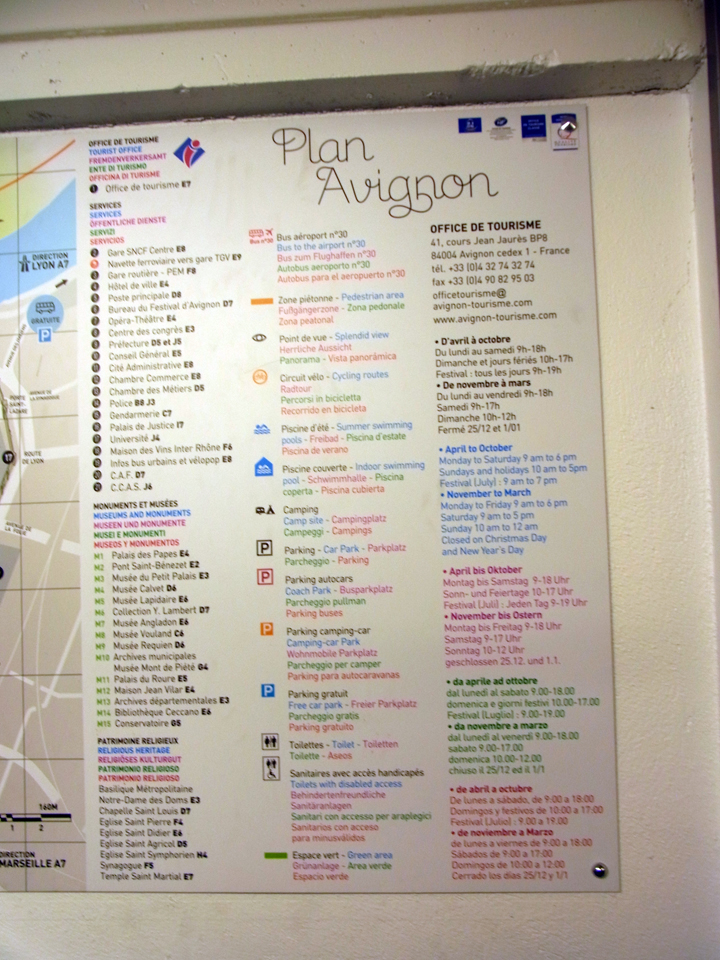 DIRECTION
LYON A7
GRATUITE
P
PONTE
SAINT-
LAZARE
AVENUE DE
LA SYNAGOGUE
17
ROUTE
DE LYON
AVENUE DE
LA FOLIE
160M
1 2
DIRECTION
MARSEILLE A7
OFFICE DE TOURISME
TOURIST OFFICE
FREMDENVERKERSAMT
ENTE DI TURISMO
OFFICINA DI TURISME
1 Office de tourisme E7
SERVICES
SERVICES
ÖFFENTLICHE DIENSTE
SERVIZI
SERVICIOS
Gare SNCF Centre E8
Navette ferroviaire vers gare TGV E9
Gare routière - PEM F8
Hôtel de ville E4
Poste principale D8
Bureau du Festival d'Avignon D7
Opéra-Théâtre E4
Centre des congrès E3
Préfecture D5 et J5
Conseil Général E5
Cité Administrative E8
Chambre Commerce E8
Chambre des Métiers D5
Police B8 J3
Gendarmerie C7
Palais de Justice I7
Université J4
Maison des Vins Inter Rhône F6
Infos bus urbains et vélopop E8
C.A.F. D7
C.C.A.S. J6
MONUMENTS ET MUSÉES
MUSEUMS AND MONUMENTS
MUSEEN UND MONUMENTE
MUSEI E MONUMENTI
MUSEOS Y MONUMENTOS
M1 Palais des Papes E4
M2 Pont Saint-Bénezet E2
M3 Musée du Petit Palais E3
M4 Musée Calvet D6
M5 Musée Lapidaire E6
M6 Collection Y. Lambert D7
M7 Musée Angladon E6
M8 Musée Vouland C6
M9 Musée Requien D6
M10 Archives municipales
Musée Mont de Piété G4
M11 Palais du Roure E5
M12 Maison Jean Vilar E4
M13 Archives départementales E3
M14 Bibliothèque Ceccano E6
M15 Conservatoire G5
PATRIMOINE RELIGIEUX
RELIGIOUS HERITAGE
RELIGIÖSES KULTURGUT
PATRIMONIO RELIGIOSO
PATRIMONIO RELIGIOSO
Basilique Métropolitaine
Notre-Dame des Doms E3
Chapelle Saint Louis D7
Eglise Saint Pierre F4
Eglise Saint Didier E6
Eglise Saint Agricol D5
Eglise Saint Symphorien H4
Synagogue F5
Temple Saint Martial E7
Plan
Avignon
Bus n°30
Bus aéroport n°30
Bus to the airport n°30
Bus zum Flughaffen n°30
Autobus aeroporto n°30
Autobus para el aeropuerto n°30
Zone piétonne - Pedestrian area
Fußgängerzone - Zona pedonale
Zona peatonal
Point de vue - Splendid view
Herrliche Aussicht
Panorama - Vista panorámica
Circuit vélo - Cycling routes
Radtour
Percorsi in bicicletta
Recorrido en bicicleta
Piscine d'été - Summer swimming
pools - Freibad - Piscina d'estate
Piscina de verano
Piscine couverte - Indoor swimming
pool - Schwimmhalle - Piscina
coperta - Piscina cubierta
Camping
Camp site - Campingplatz
Campeggi - Campings
P Parking - Car Park - Parkplatz
Parcheggio - Parking
P Parking autocars
Coach Park - Busparkplatz
Parcheggio pullman
Parking buses
P Parking camping-car
Camping-car Park
Wohnmobile Parkplatz
Parcheggio per camper
Parking para autocaravanas
P Parking gratuit
Free car park - Freier Parkplatz
Parcheggio gratis
Parking gratuito
Toilettes - Toilet - Toiletten
Toilette - Aseos
Sanitaires avec accès handicapés
Toilets with disabled access
Behindertenfreundliche
Sanitäranlagen
Sanitari con accesso per araplegici
Sanitarios con acceso
para minusválidos
Espace vert - Green area
Grünanlage - Area verde
Espacio verde
OFFICE DE TOURISME
41, cours Jean Jaurès BP8
84004 Avignon cedex 1 - France
tél. +33 (0)4 32 74 32 74
fax +33 (0)4 90 82 95 03
officetourisme@
avignon-tourisme.com
www.avignon-tourisme.com
• D'avril à octobre
Du lundi au samedi 9h-18h
Dimanche et jours fériés 10h-17h
Festival : tous les jours 9h-19h
• De novembre à mars
Du lundi au vendredi 9h-18h
Samedi 9h-17h
Dimanche 10h-12h
Fermé 25/12 et 1/01
• April to October
Monday to Saturday 9 am to 6 pm
Sundays and holidays 10 am to 5pm
Festival (July) : 9 am to 7 pm
• November to March
Monday to Friday 9 am to 6 pm
Saturday 9 am to 5 pm
Sunday 10 am to 12 am
Closed on Christmas Day
and New Year's Day
• April bis Oktober
Montag bis Samstag 9-18 Uhr
Sonn- und Feiertage 10-17 Uhr
Festival (Juli) : Jeden Tag 9-19 Uhr
• November bis Ostern
Montag bis Freitag 9-18 Uhr
Samstag 9-17 Uhr
Sonntag 10-12 Uhr
geschlossen 25.12. und 1.1.
• da aprile ad ottobre
dal lunedi al sabato 9.00-18.00
domenica e giorni festivi 10.00-17.00
Festival (Luglio) : 9.00-19.00
• da novembre a marzo
dal lunedi al venerdi 9.00-18.00
sabato 9.00-17.00
domenica 10.00-12.00
chiuso il 25/12 ed il 1/1
• de abril a octubre
De lunes a sábado, de 9:00 a 18:00
Domingos y festivos de 10:00 a 17:00
Festival (Julio) : 9.00 a 19.00
• de noviembre a Marzo
de lunes a viernes de 9:00 a 18:00
Sábados de 9:00 a 17:00
Domingos de 10:00 a 12:00
Cerrado los días 25/12 y 1/1